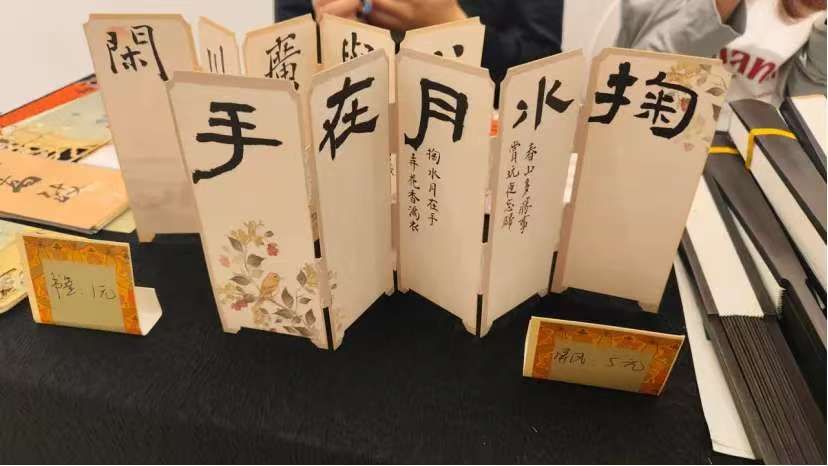 掬水月在手
春山多勝事
賞玩忘歸
掬水月在手
弄花香滿衣
廣川閑
1元
屏风：5元